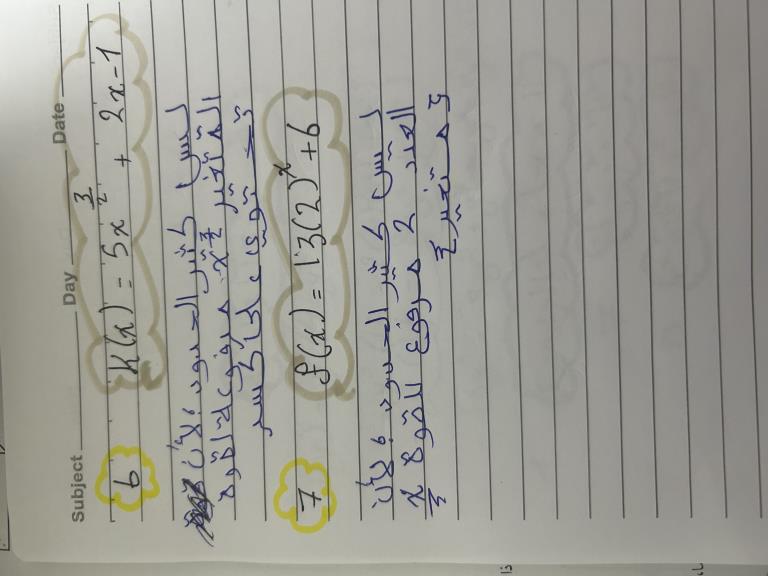 Subject Day Date
6 K(x) = 5x^{3/2} + 2x - 1
ليس كثير الحدود، لأن
المتغير x مرفوع لقوة
7 f(x) = 13(2)^x + 6
ليس كثير الحدود، لأن
العدد 2 مرفوع للقوة x
متغير